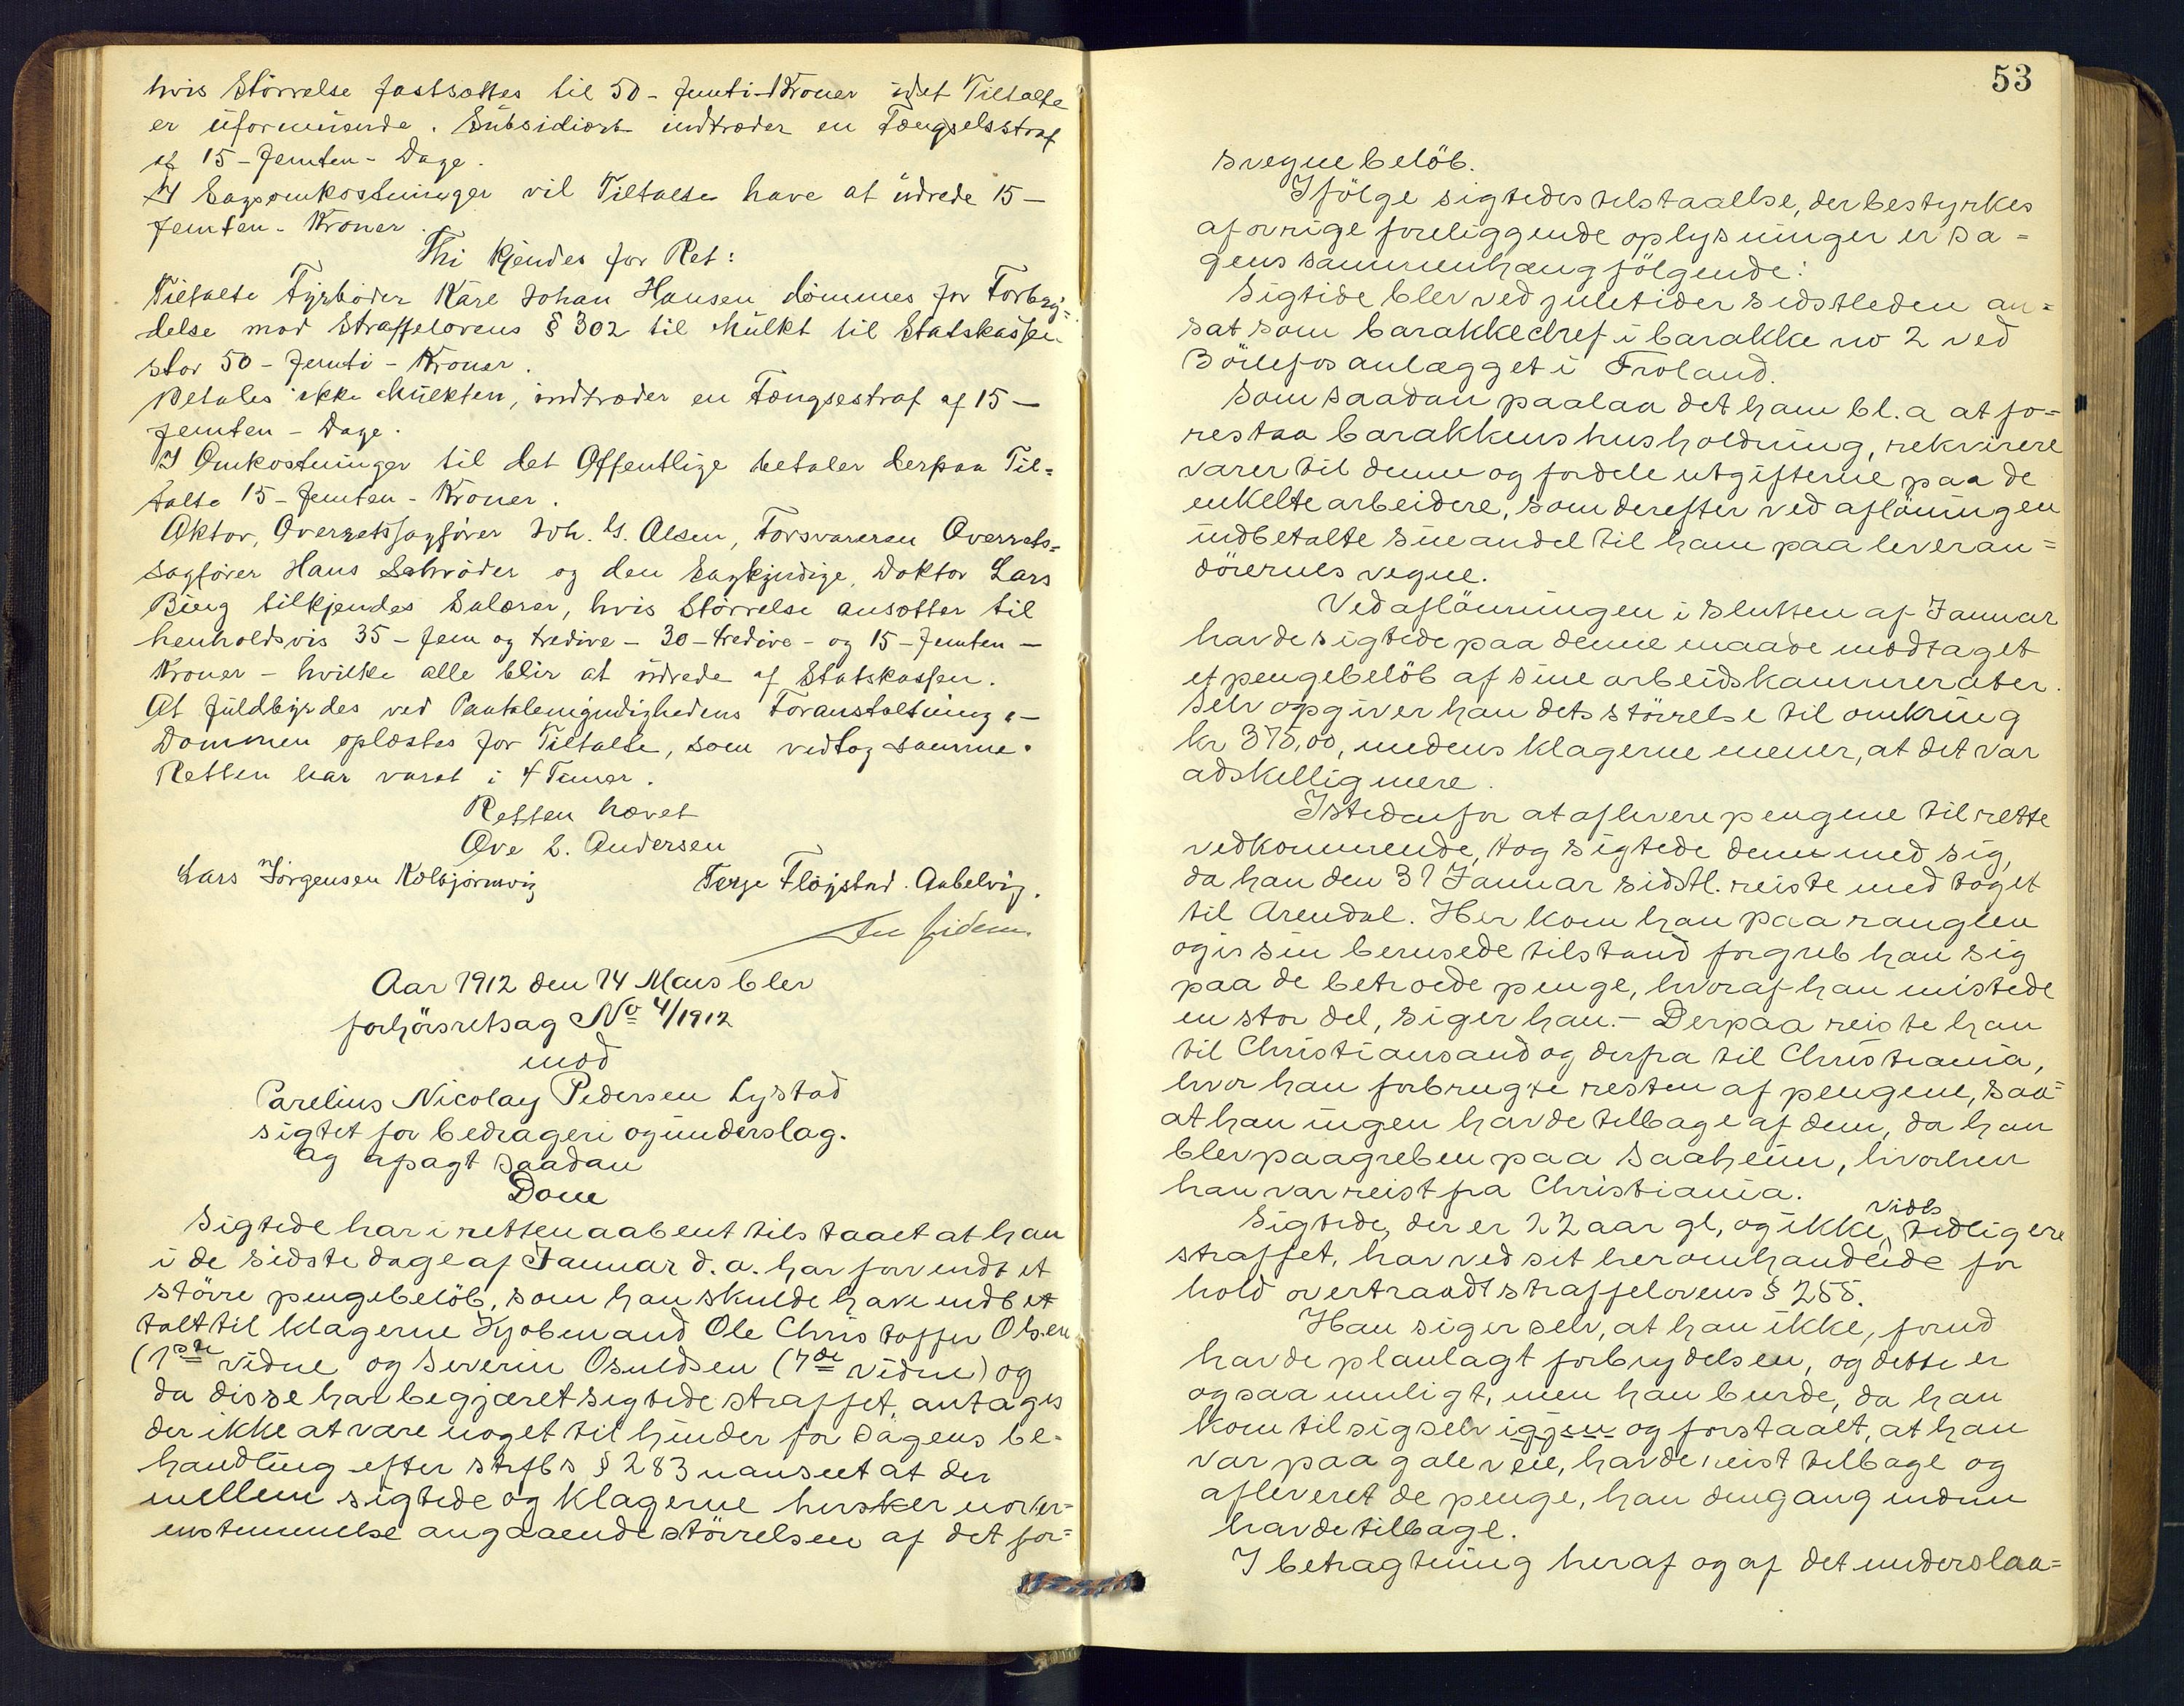 hvis Størrelse fastsættes til 50 - femti - Kroner idet Tiltalte
er uformuende. Subsidiært indtræder en Fængselsstraf
af 15 - femten - Dage.
I Sagsomkostninger vil Tiltalte have at udrede 15 -
femten - Kroner.
Thi kjendes for Ret:
Tiltalte Fyrbøder Kåre Johan Hansen dømmes for Forbry=
delse mod Straffelovens § 302 til Mulkt til Statskassen
stor 50 - femti - Kroner.
Betales ikke Mulkten, indtræder en Fængsestraf af 15 -
femten - Dage.
I Omkostninger til det Offentlige betaler derpaa Til=
talte 15 - femten - Kroner.
Aktor, Overretssagfører Joh. G. Olsen, Forsvareren Overrets=
sagfører Hans Schrøder og den Sagkyndige, Doktor Lars
Bieng tilkjendes Salærer, hvis Størrelse ansætter til
henholdsvis 35 - fem og tredive - 30 - tredive - og 15 - femten -
Kroner - hvilke alle blir at udrede af Statskassen.
At fuldbyrdes ved Paatalemyndighedens Foranstaltning. -
Dommen oplæstes for Tiltalte, som vedtog samme.
Retten har varet i 4 Timer.
Retten hævet
Ove L. Andersen
Lars Jørgensen Kolbjørnsvig Terje Fløystad. Aabelvig.
Aar 1912 den 14 Mars blev
forhörsretsag No 4/1912
mod
Carelius Nicolay Pedersen Lystad
sigtet for bedrageri og underslag.
ag afsagt saadan
Dom
Sigtede har i retten aabent tilstaaet at han
i de sidste dage af Januar d. a. har forvendt et
större pengebelöb, som han skulde have indbet
talt til klagerne Kjöbmand Ole Christoffer Olsen
(1ste vidne og Severin Osuldsen (7de vidne) og
da disse har begjæret sigtede straffet, antages
der ikke at være noget til hinder for sagens be=
handling efter strfls § 283 uanseet at der
mellem sigtede og klagerne hersker uover=
enstemmelse angaaende störrelsen af det for=
53
svegne belöb.
Ifölge sigtedes tilstaaelse, der bestyrkes
af övrige foreliggende oplysninger er sa=
gens sammenhæng fölgende:
Sigtede blev ved juletider sidstleden an=
sat som barakkechef i barakke no 2 ved
Böilefos anlægget i Froland.
Som saadan paalaa det ham bl. a at fo=
restaa barakkens husholdning, rekvirere
varer til denne og fordele utgifterne paa de
enkelte arbeidere, som derefter ved aflöningen
indbetalte sin andel til ham paa leveran=
dörernes vegne.
Ved aflönningen i slutten af Januar
havde sigtede paa denne maade modtaget
et pengebelöb af sine arbeidskammerater.
Selv opgiver han dets störrelse til omkring
kr 375,00, medens klagerne mener, at det var
adskillig mere.
Istedenfor at aflevere pengene til rette
vedkommende, tog sigtede dem med sig,
da han den 31 Januar sidstl. reiste med toget
til Arendal. Her kom han paa ranglen
og i sin berusede tilstand forgreb han sig
paa de betroede penge, hvoraf han mistede
en stor del, siger han. - Derpaa reiste han
til Christiansand og derfra til Christiania,
hvor han forbrugte resten af pengene, saa=
at han ingen havde tilbage af dem, da han
blev paagreben paa Saaheim, hvorhen
han var reist fra Christiania.
Sigtede, der er 22 aar gl, og ikke vides tidligere
straffet, har ved sit heromhandlede for
hold overtraadt straffelovens § 255.
Han siger selv, at han ikke, forud
havde planlagt forbrydelsen, og dette er
ogsaa muligt, men han burde, da han
kom til sig selv igjen og forstaalt, at han
var paa gale veie, havde reist tilbage og
afleveret de penge, han dengang endnu
havde tilbage.
I betragtning heraf og af det underslaa=